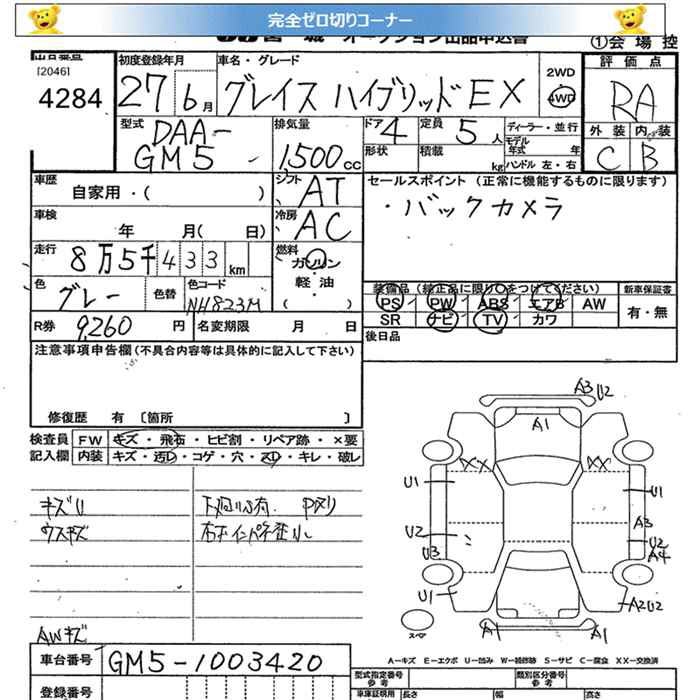 完全ゼロ切りコーナー
オークション出品申込書 ①会場控
[2046]
4284
初度登録年月
27 6月
車名・グレード
グレイス ハイブリッド EX
2WD
4WD
評価点
RA
外装 内装
C B
型式
DAA-
GM5
排気量
1,500cc
ドア 4
定員 5人
ディーラー・並行
モデル年式 年
形状
積載 kg
ハンドル 左・右
車歴
自家用・( )
シフト AT
セールスポイント (正常に機能するものに限ります)
・バックカメラ
車検
年 月( 日)
冷房 AC
走行
8万5千433km
燃料
ガソリン
軽油
( )
色
グレー
色替
色コード
NH823M
装備品(純正品に限り○をつけてください)
PS PW ABS エアB AW
SR ナビ TV カワ
新車保証書
有・無
R券 9,260円
名変期限 月 日
後日品
注意事項申告欄(不具合内容等は具体的に記入して下さい)
修復歴 有 〔箇所 〕
検査員記入欄
FW キズ・飛石・ヒビ割・リペア跡・×要
内装 キズ・汚レ・コゲ・穴・スレ・キレ・破レ
キズU
ウスキズ
AWキズ
A3 U2
A1
XX XX
U1 U1
U2 A3
U3 U2
A4
U1 A2U2
A1 A1
スペア
A-キズ E-エクボ U-凹み W-補修跡 S-サビ C-腐食 XX-交換済
車台番号 GM5-1003420
登録番号
型式指定番号
参考
類別区分番号
参考
車庫証明用
長さ
幅
高さ